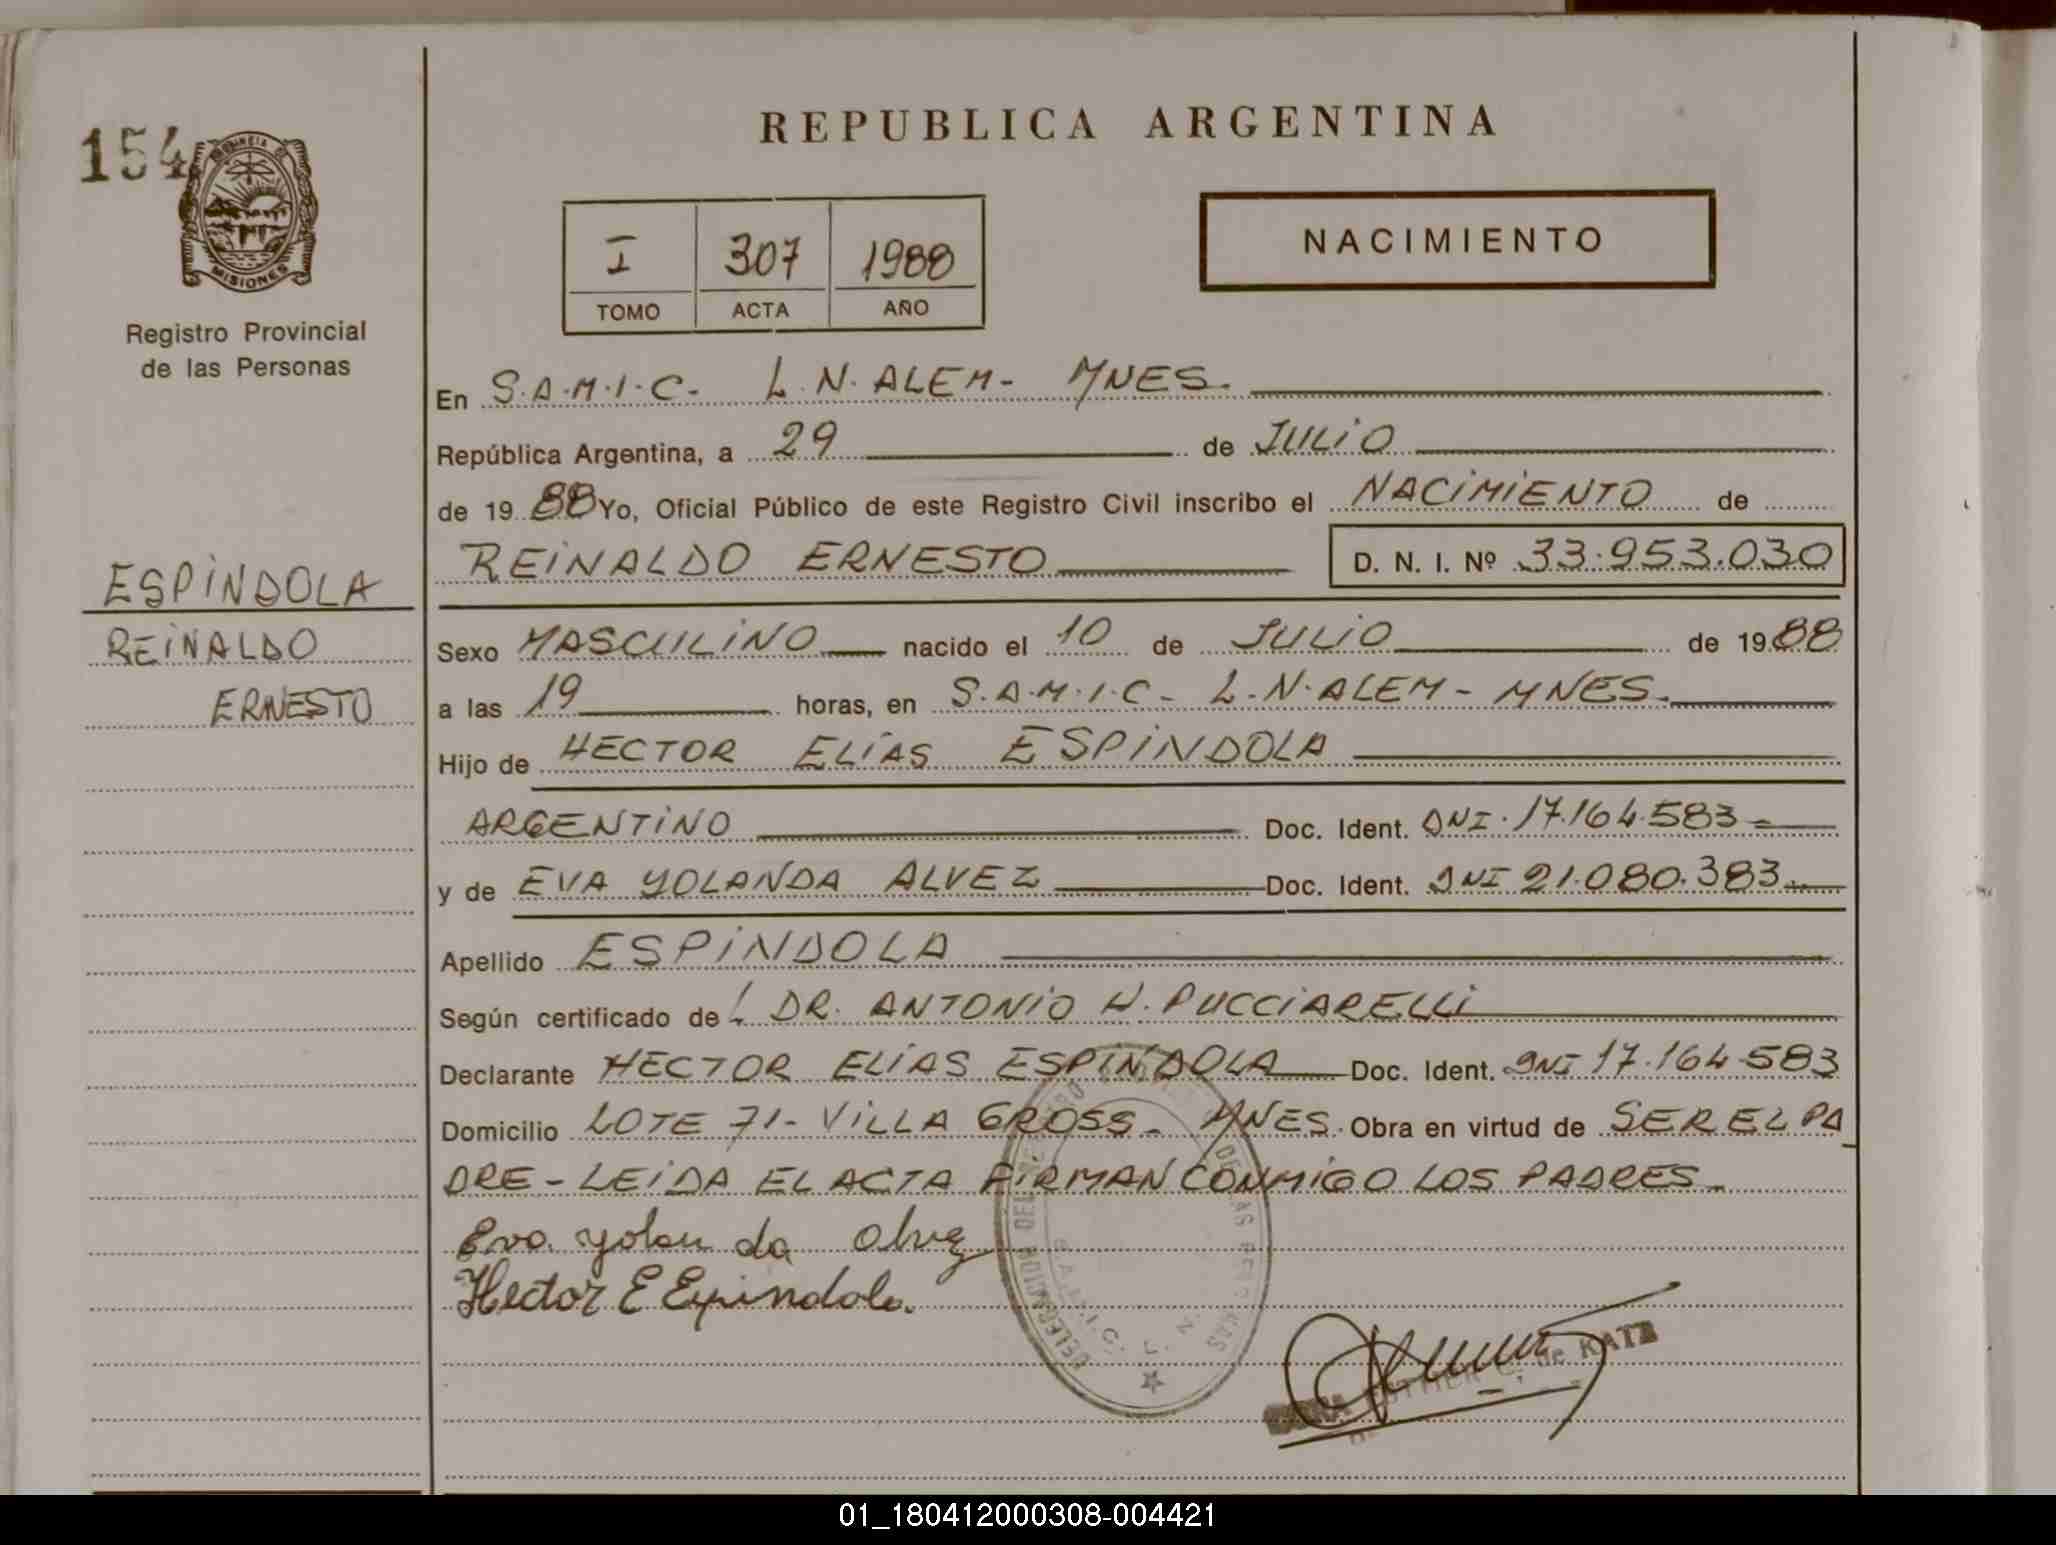 REPUBLICA ARGENTINA
154
PROVINCIA DE
MISIONES
Registro Provincial
de las Personas
I 307 1988
TOMO ACTA AÑO
NACIMIENTO
En S.A.M.I.C. L.N. ALEM - MNES.
República Argentina, a 29 de JULIO
de 1988 Yo, Oficial Público de este Registro Civil inscribo el NACIMIENTO de
REINALDO ERNESTO D. N. I. Nº 33.953.030
ESPINDOLA
REINALDO
ERNESTO
Sexo MASCULINO nacido el 10 de JULIO de 1988
a las 19 horas, en S.A.M.I.C - L.N. ALEM - MNES.
Hijo de HECTOR ELIAS ESPINDOLA
ARGENTINO Doc. Ident. DNI. 17.164.583
y de EVA YOLANDA ALVEZ Doc. Ident. DNI 21.080.383
Apellido ESPINDOLA
Según certificado del DR. ANTONIO H. PUCCIARELLI
Declarante HECTOR ELIAS ESPINDOLA Doc. Ident. DNI 17.164.583
Domicilio LOTE 71 - VILLA GROSS - MNES. Obra en virtud de SER EL PA
DRE - LEIDA EL ACTA FIRMAN CONMIGO LOS PADRES -
Eva yolanda alvez
Hector E Espindola.
S.A.M.I.C. L. N.
de KATZ
01_180412000308-004421